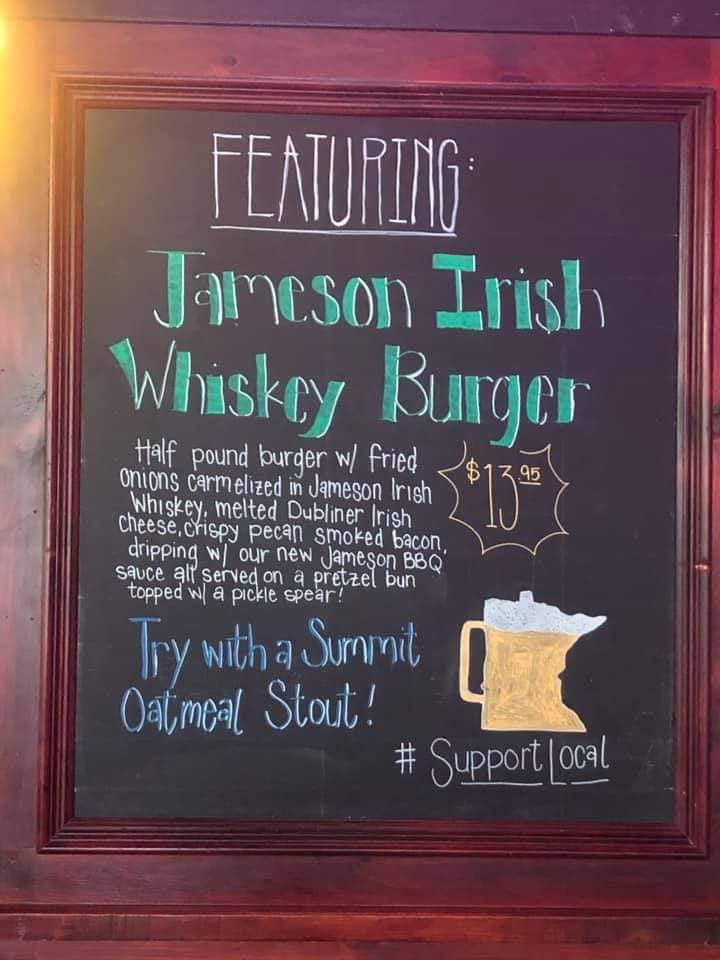 FEATURING:
Jameson Irish
Whiskey Burger
Half pound burger w/ fried
onions carmelized in Jameson Irish
Whiskey, melted Dubliner Irish
cheese, crispy pecan smoked bacon,
dripping w/ our new Jameson BBQ
sauce all served on a pretzel bun
topped w/ a pickle spear!
$13.95
Try with a Summit
Oatmeal Stout!
# Support Local